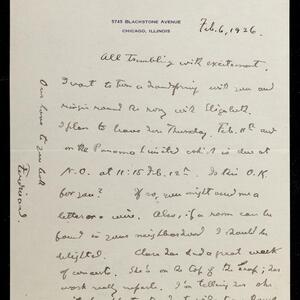 5745 BLACKSTONE AVENUE
CHICAGO, ILLINOIS
Feb. 6, 1926.
All trembling with excitement.
I want to turn a handspring with you and
ring around the rosy with Elizabeth.
I plan to leave here Thursday, Feb. 11th and
on the Panama Limited which is due at
N.O. at 11:15 Feb. 12th. Is this O.K.
for you? If so, you might send me a
letter or a wire. Also, if a room can be
found in your neighborhood I should be
delighted. Clara has had a great week
of concerts. She's on the top of the heap; has
work really superb. I'm telling her she
Our love to you both
Ferdinand.